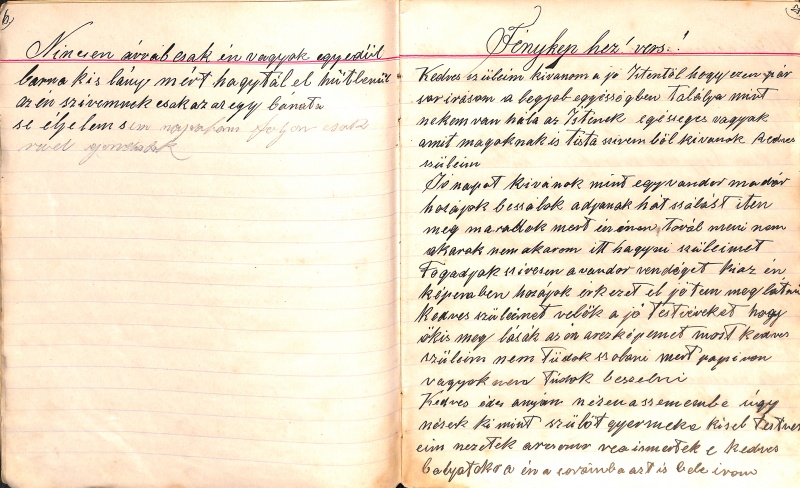 6
Nincsen árváb csak én vagyok egyedül
barna kis lány mért hagytál el hűtlenül
az én szivemnek csak az az egy bánata
se éjelem sem napalom folyon csak
rúd gondolok
Fénykép hez! vers!
Kedves szüleim kivánom a jó Istentöl hogy ezen pár
sor irásom a legjob egésségben találja mint
nekem van hála az Istenek egésséges vagyok
amit magoknak is tiista szivem ból kivánok Kedves
szüleim
Jó napot kivánok mint egy vandor madár
hozájok beszálok adjanak hát szálást iten
meg maradok mert én innen továl meni nem
akarok nem akarom itt hagyni szüleimet
Fogadják szivesen a vandor vendéget ki az én
képemben hozájok érkezet el jötem meglátni
Kedves szüleimet velök a jó testvéreket hogy
ökis meg lásák az én arczképemet most kedves
szüleim nem tüdok szolani mert papiron
vagyok nem tüdok beszelni
Kedves édes anyám nézen a szemembe úgy
nézek ki mint szülöt gyermeke kisel testvér
eim nezetek arczomr reaismertek e kedves
batyatokra én a sorámba azt is bele irom